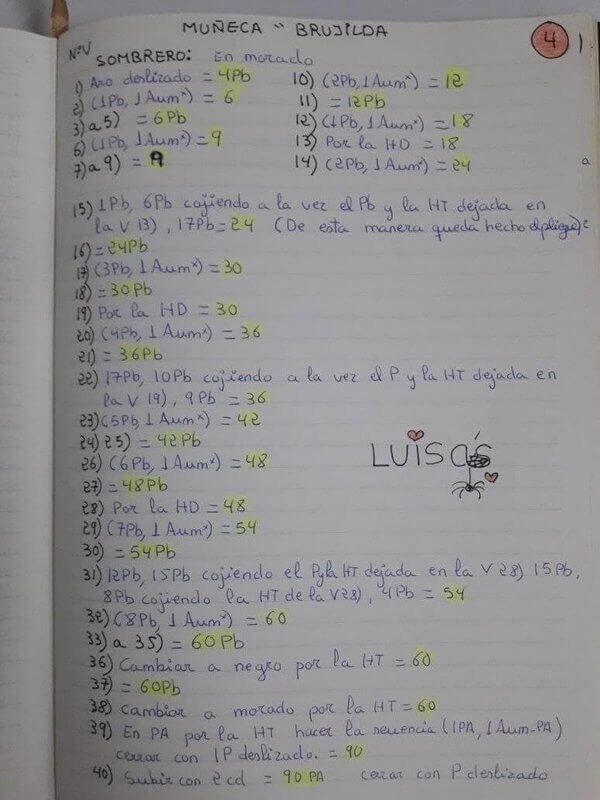 MUÑECA " BRUJILDA
4
NºV SOMBRERO: En morado
1) Aro deslizado = 4Pb
2) (1Pb, 1Aumˣ) = 6
3) a 5) = 6Pb
6) (1Pb, 1Aumˣ) = 9
7) a 9) = 9
10) (2Pb, 1Aumˣ) = 12
11) = 12Pb
12) (1Pb, 1Aumˣ) = 18
13) Por la HD = 18
14) (2Pb, 1Aumˣ) = 24
15) 1Pb, 6Pb cojiendo a la vez el Pb y la HT dejada en
la V 13), 17Pb = 24 (De esta manera queda hecho el pliegue)
16) = 24Pb
17) (3Pb, 1Aumˣ) = 30
18) = 30Pb
19) Por la HD = 30
20) (4Pb, 1Aumˣ) = 36
21) = 36Pb
22) 17Pb, 10Pb cojiendo a la vez el P y la HT dejada en
la V 19), 9Pb = 36
23) (5Pb, 1Aumˣ) = 42
24) 25) = 42Pb
26) (6Pb, 1Aumˣ) = 48
27) = 48Pb
28) Por la HD = 48
29) (7Pb, 1Aumˣ) = 54
30) = 54Pb
LUISA's
31) 12Pb, 15Pb cojiendo el P y la HT dejada en la V 28) 15Pb,
8Pb cojiendo la HT de la V28), 4Pb = 54
32) (8Pb, 1Aumˣ) = 60
33) a 35) = 60Pb
36) Cambiar a negro por la HT = 60
37) = 60Pb
38) Cambiar a morado por la HT = 60
39) En PA por la HT hacer la seuencia (1PA, 1Aum-PA)
cerrar con 1P deslizado. = 90
40) Subir con 2cd = 90 PA cerrar con P deslizado